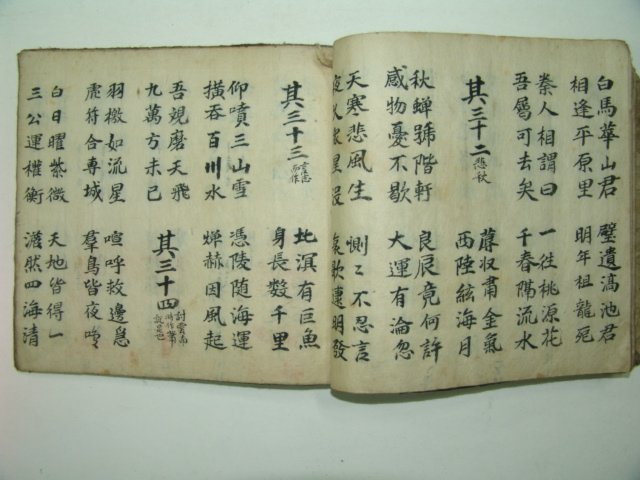 白馬華山君 璧遺滈池君
相逢平原里 明年祖龍死
秦人相謂曰 一往桃源花
吾屬可去矣 千春隔流水
其三十二 悲秋
蓐収肅金氣
西陸絃海月
秋蟬號階軒 良辰竟何許
感物憂不歇 大運有淪忽
天寒悲風生 惻〻不忍言
夜久衆星沒 哀歌達明發
其三十三
北溟有巨魚
身長數千里
仰噴三山雪 憑陵随海運
橫吞百川水 燀赫因風起
吾覌磨天飛
九萬方未已
其三十四 討雲南時作
羽檄如流星 喧呼救邊急
虎符合專城 羣鳥皆夜鳴
白日曜紫微 天地皆得一
三公運權衡 澹然四海清